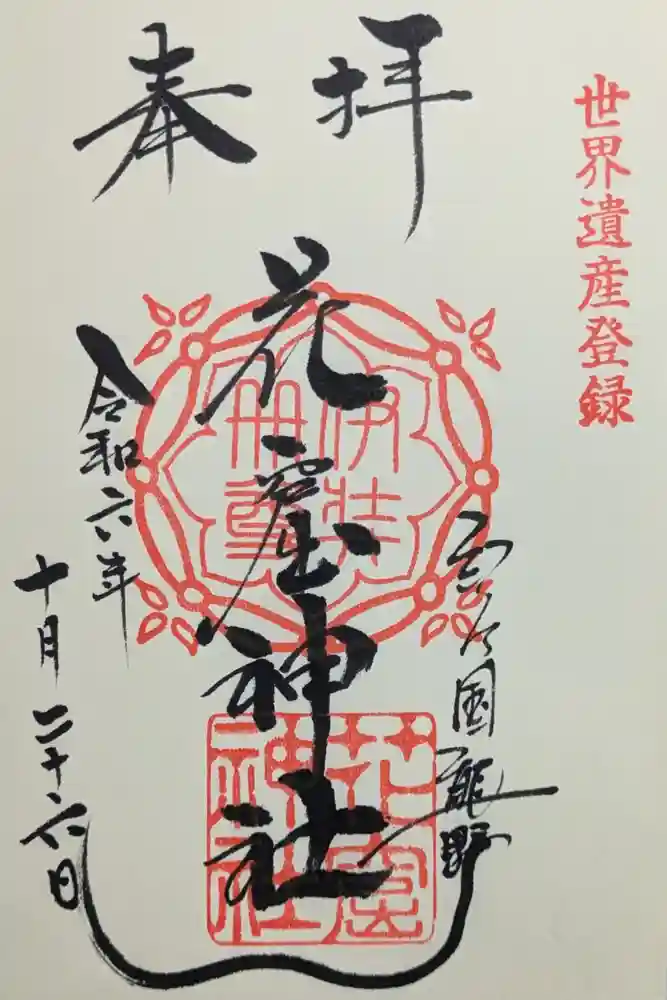 世界遺産登録
奉拝
国熊野
花窟神社
伊弉
冊尊
花窟
神社
令和六年
十月二十六日